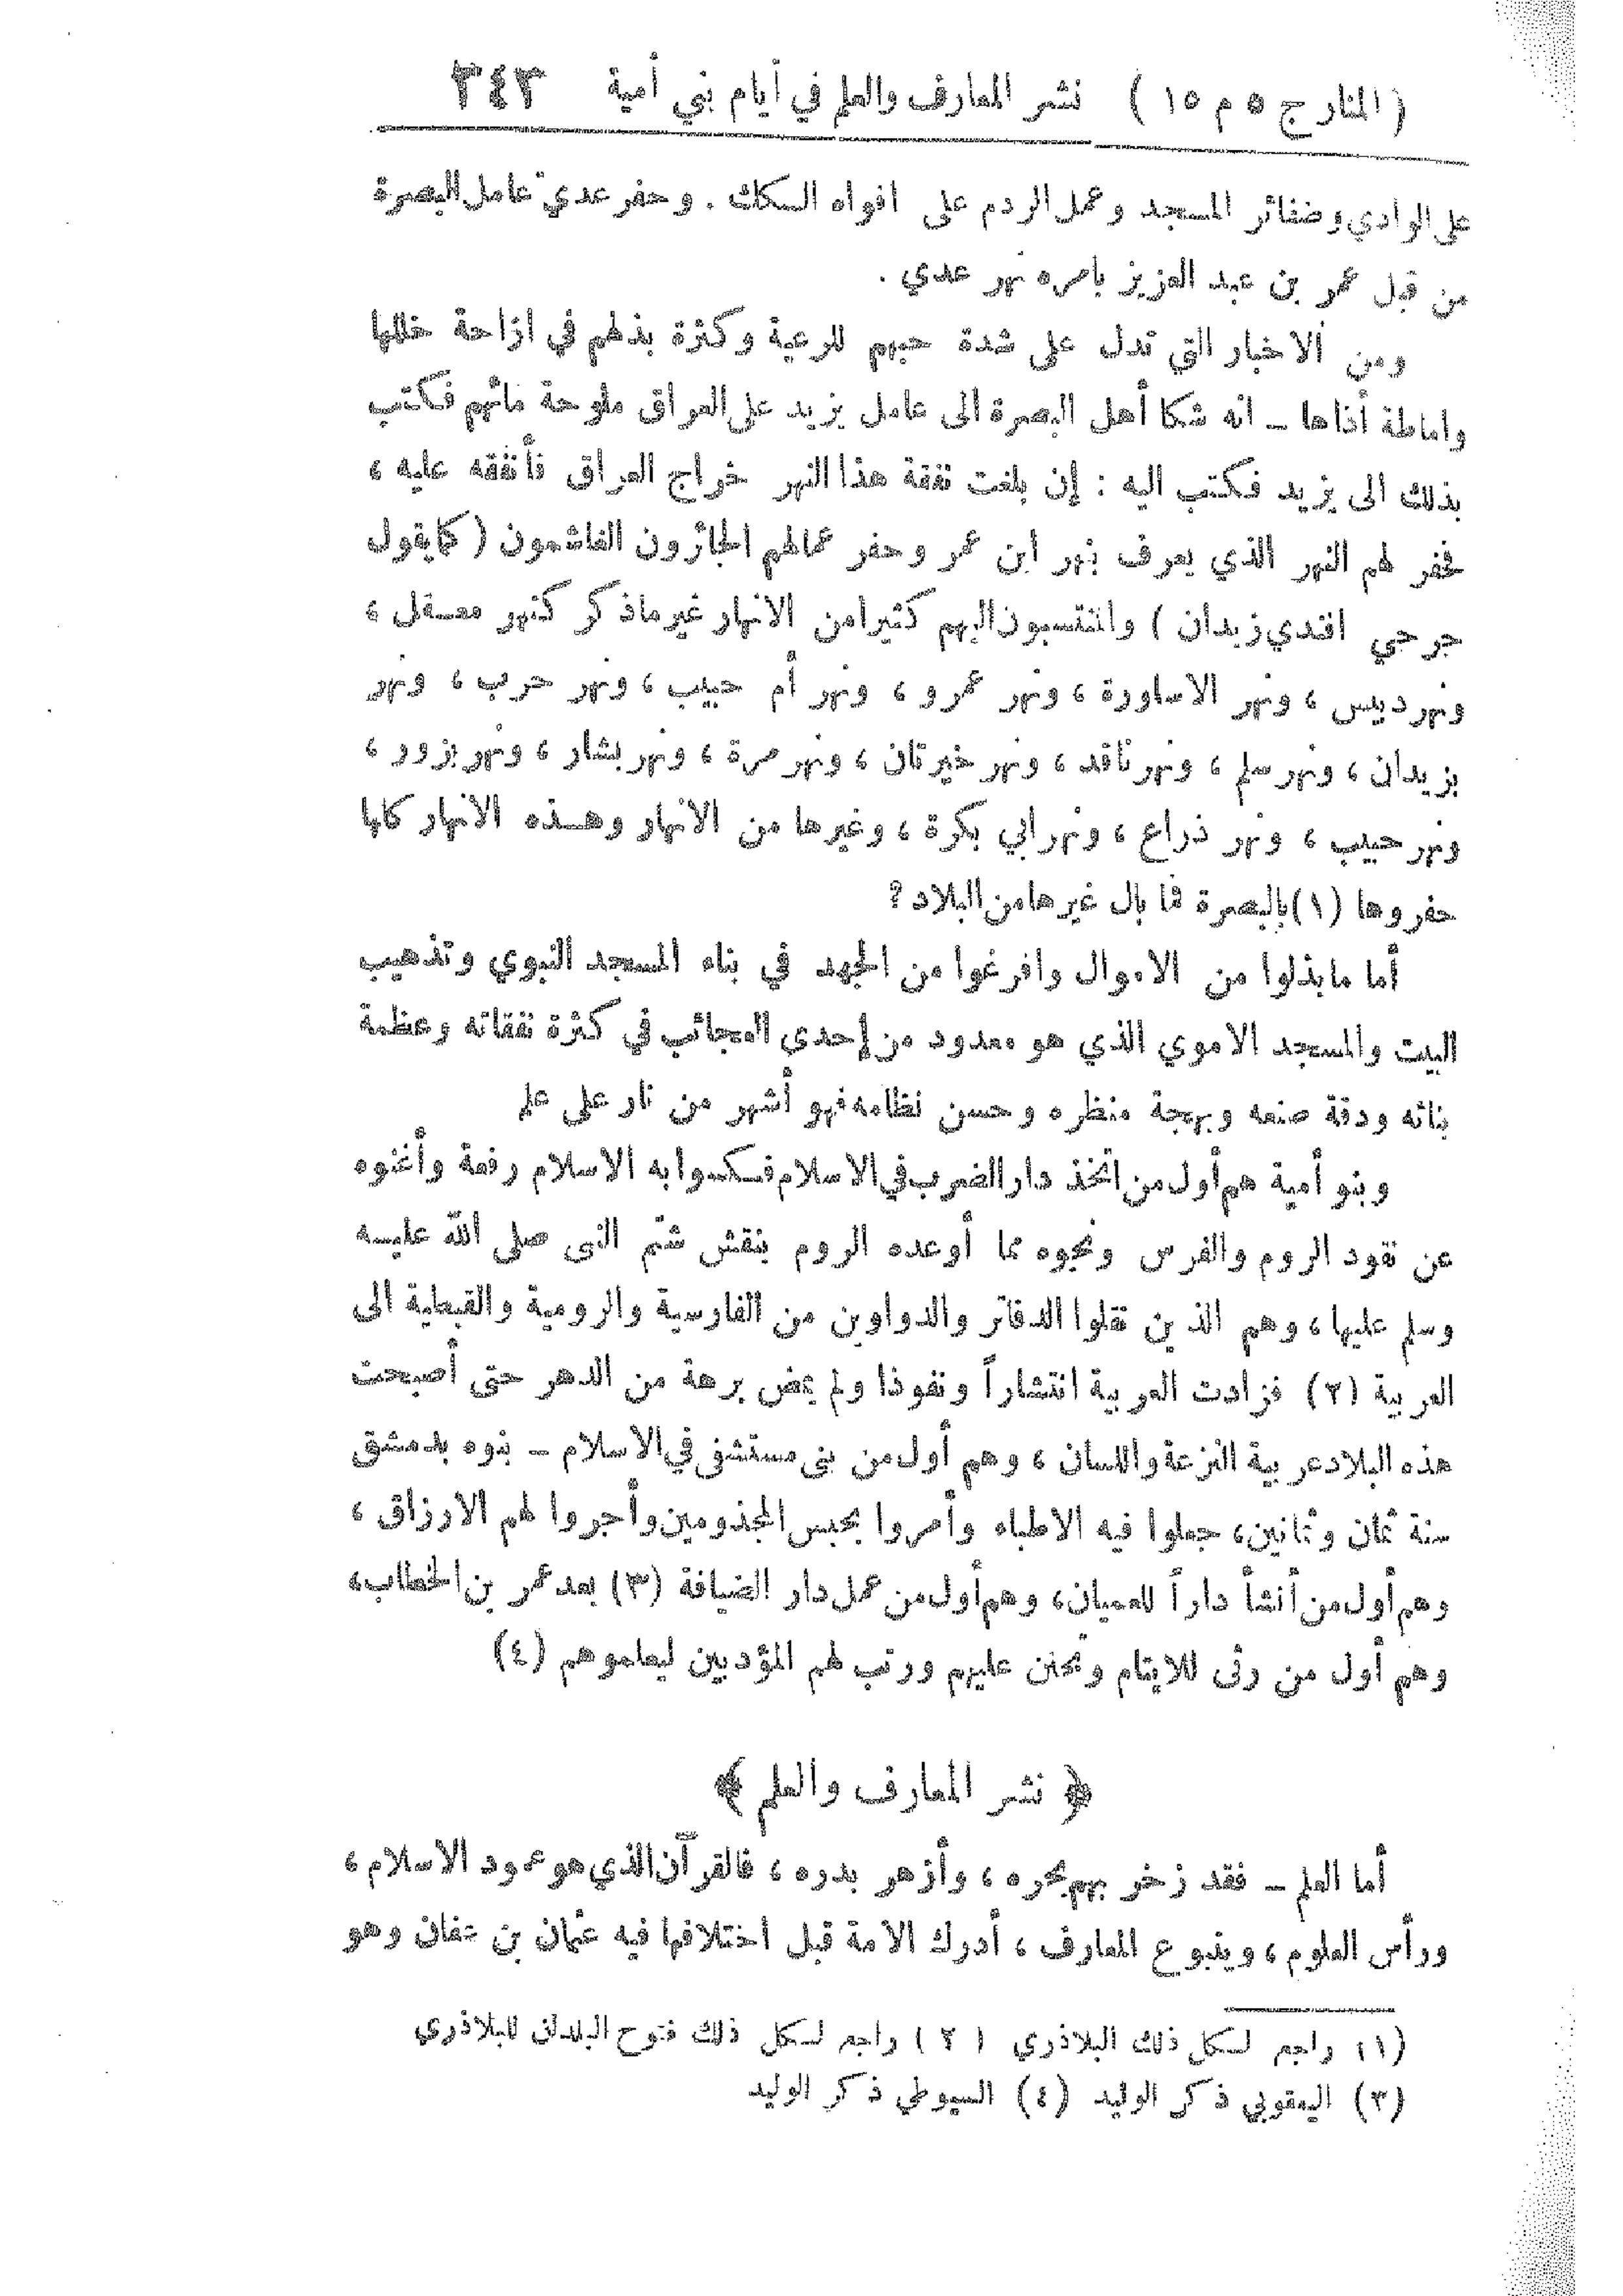 ( المنار ج ٥ م ١٥ ) نشر المعارف والعلم في أيام بني أمية ٣٤٣
على الوادي وضفائر المسجد وعمل الردم على افواه السكك . وحفر عدي عامل البصرة
من قبل عمر بن عبد العزيز بامره نهر عدي .
ومن الاخبار التي تدل على شدة حبهم للرعية وكثرة بذلهم في ازاحة خللها
واماطة أذاها – انه شكا أهل البصرة الى عامل يزيد على العراق ملوحة مائهم فكتب
بذلك الى يزيد فكتب اليه : إن بلغت نفقة هذا النهر خراج العراق فأنفقه عليه ،
فحفر لهم النهر الذي يعرف بنهر ابن عمر وحفر عمالهم الجائرون الغاشمون ( كما يقول
جرجي افندي زيدان ) والمنتسبون اليهم كثيرا من الانهار غير ما ذكر كنهر معقل ،
ونهر دبيس ، ونهر الاساورة ، ونهر عمرو ، ونهر أم حبيب ، ونهر حرب ، ونهر
يزيدان ، ونهر سلم ، ونهر نافذ ، ونهر خيرتان ، ونهر مرة ، ونهر بشار ، ونهر بزور ،
ونهر حبيب ، ونهر ذراع ، ونهر ابي بكرة ، وغيرها من الانهار وهذه الانهار كلها
حفروها (١) بالبصرة فما بال غيرها من البلاد ؟
أما ما بذلوا من الاموال وافرغوا من الجهد في بناء المسجد النبوي وتذهيب
البيت والمسجد الاموي الذي هو معدود من إحدى العجائب في كثرة نفقاته وعظمة
بنائه ودقة صنعه وبهجة منظره وحسن نظامه فهو أشهر من نار على علم
وبنو أمية هم أول من اتخذ دار الضرب في الاسلام فكسوا به الاسلام رفعة وأغنوه
عن نقود الروم والفرس ونجوه مما أوعده الروم بنقش شتم النبي صلى الله عليه
وسلم عليها ، وهم الذين نقلوا الدفاتر والدواوين من الفارسية والرومية والقبطية الى
العربية (٢) فزادت العربية انتشاراً ونفوذا ولم يمض برهة من الدهر حتى أصبحت
هذه البلاد عربية النزعة واللسان ، وهم أول من بنى مستشفى في الاسلام – بنوه بدمشق
سنة ثمان وثمانين ، جعلوا فيه الاطباء وأمروا بحبس المجذومين وأجروا لهم الارزاق ،
وهم أول من أنشأ داراً للعميان ، وهم أول من عمل دار الضيافة (٣) بعد عمر بن الخطاب ،
وهم أول من رثى للايتام وتحنن عليهم ورتب لهم المؤدبين ليعلموهم (٤)
﴿ نشر المعارف والعلم ﴾
أما العلم – فقد زخر بهم بحره ، وأزهر بدره ، فالقرآن الذي هو عمود الاسلام ،
ورأس العلوم ، وينبوع المعارف ، أدرك الامة قبل اختلافها فيه عثمان بن عفان وهو
(١) راجع لكل ذلك البلاذري (٢) راجع لكل ذلك فتوح البلدان للبلاذري
(٣) اليعقوبي ذكر الوليد (٤) السيوطي ذكر الوليد